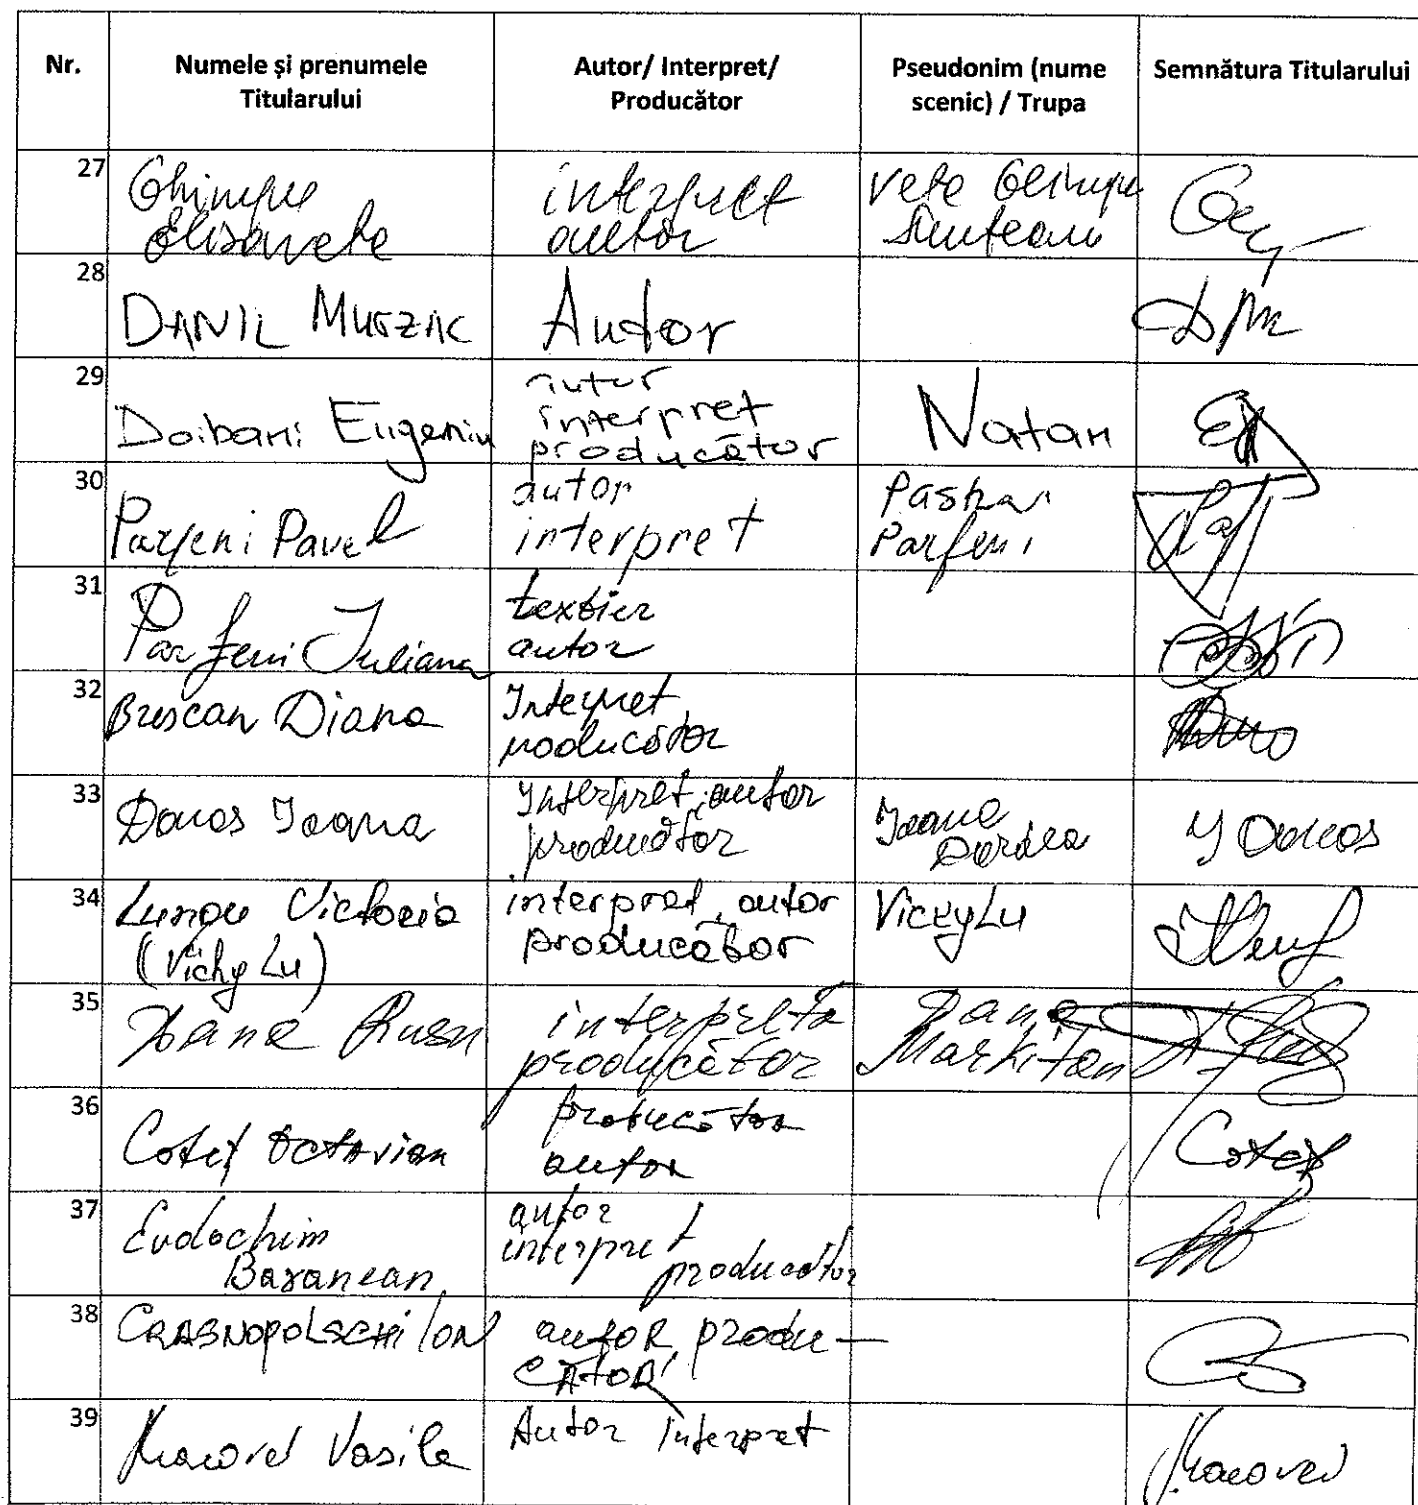 Nr. Numele și prenumele Titularului Autor/ Interpret/ Producător Pseudonim (nume scenic) / Trupa Semnătura Titularului
27 Ghimpu Elisaveta interpret autor Veta Ghimpu Munteanu
28 DANIL MURZAC Autor
29 Doibani Eugeniu autor interpret producător Natan
30 Parfeni Pavel autor interpret Pasha Parfeni
31 Parfeni Iuliana textier autor
32 Brescan Diana Interpret, producător
33 Donos Ioana Interpret, autor producător Ioana I Donos
34 Lungu Victoria (Vichy Lu) interpret, autor producător VickyLu
35 Dana Rusu interpretă producător Dana Markitan
36 Coteț Octavian producător autor Coteț
37 Evdochim Baranean autor interpret producător
38 CRASNOPOLSCHI ION autor, produ- CĂTOR
39 Macovei Vasile Autor Interpret Macovei